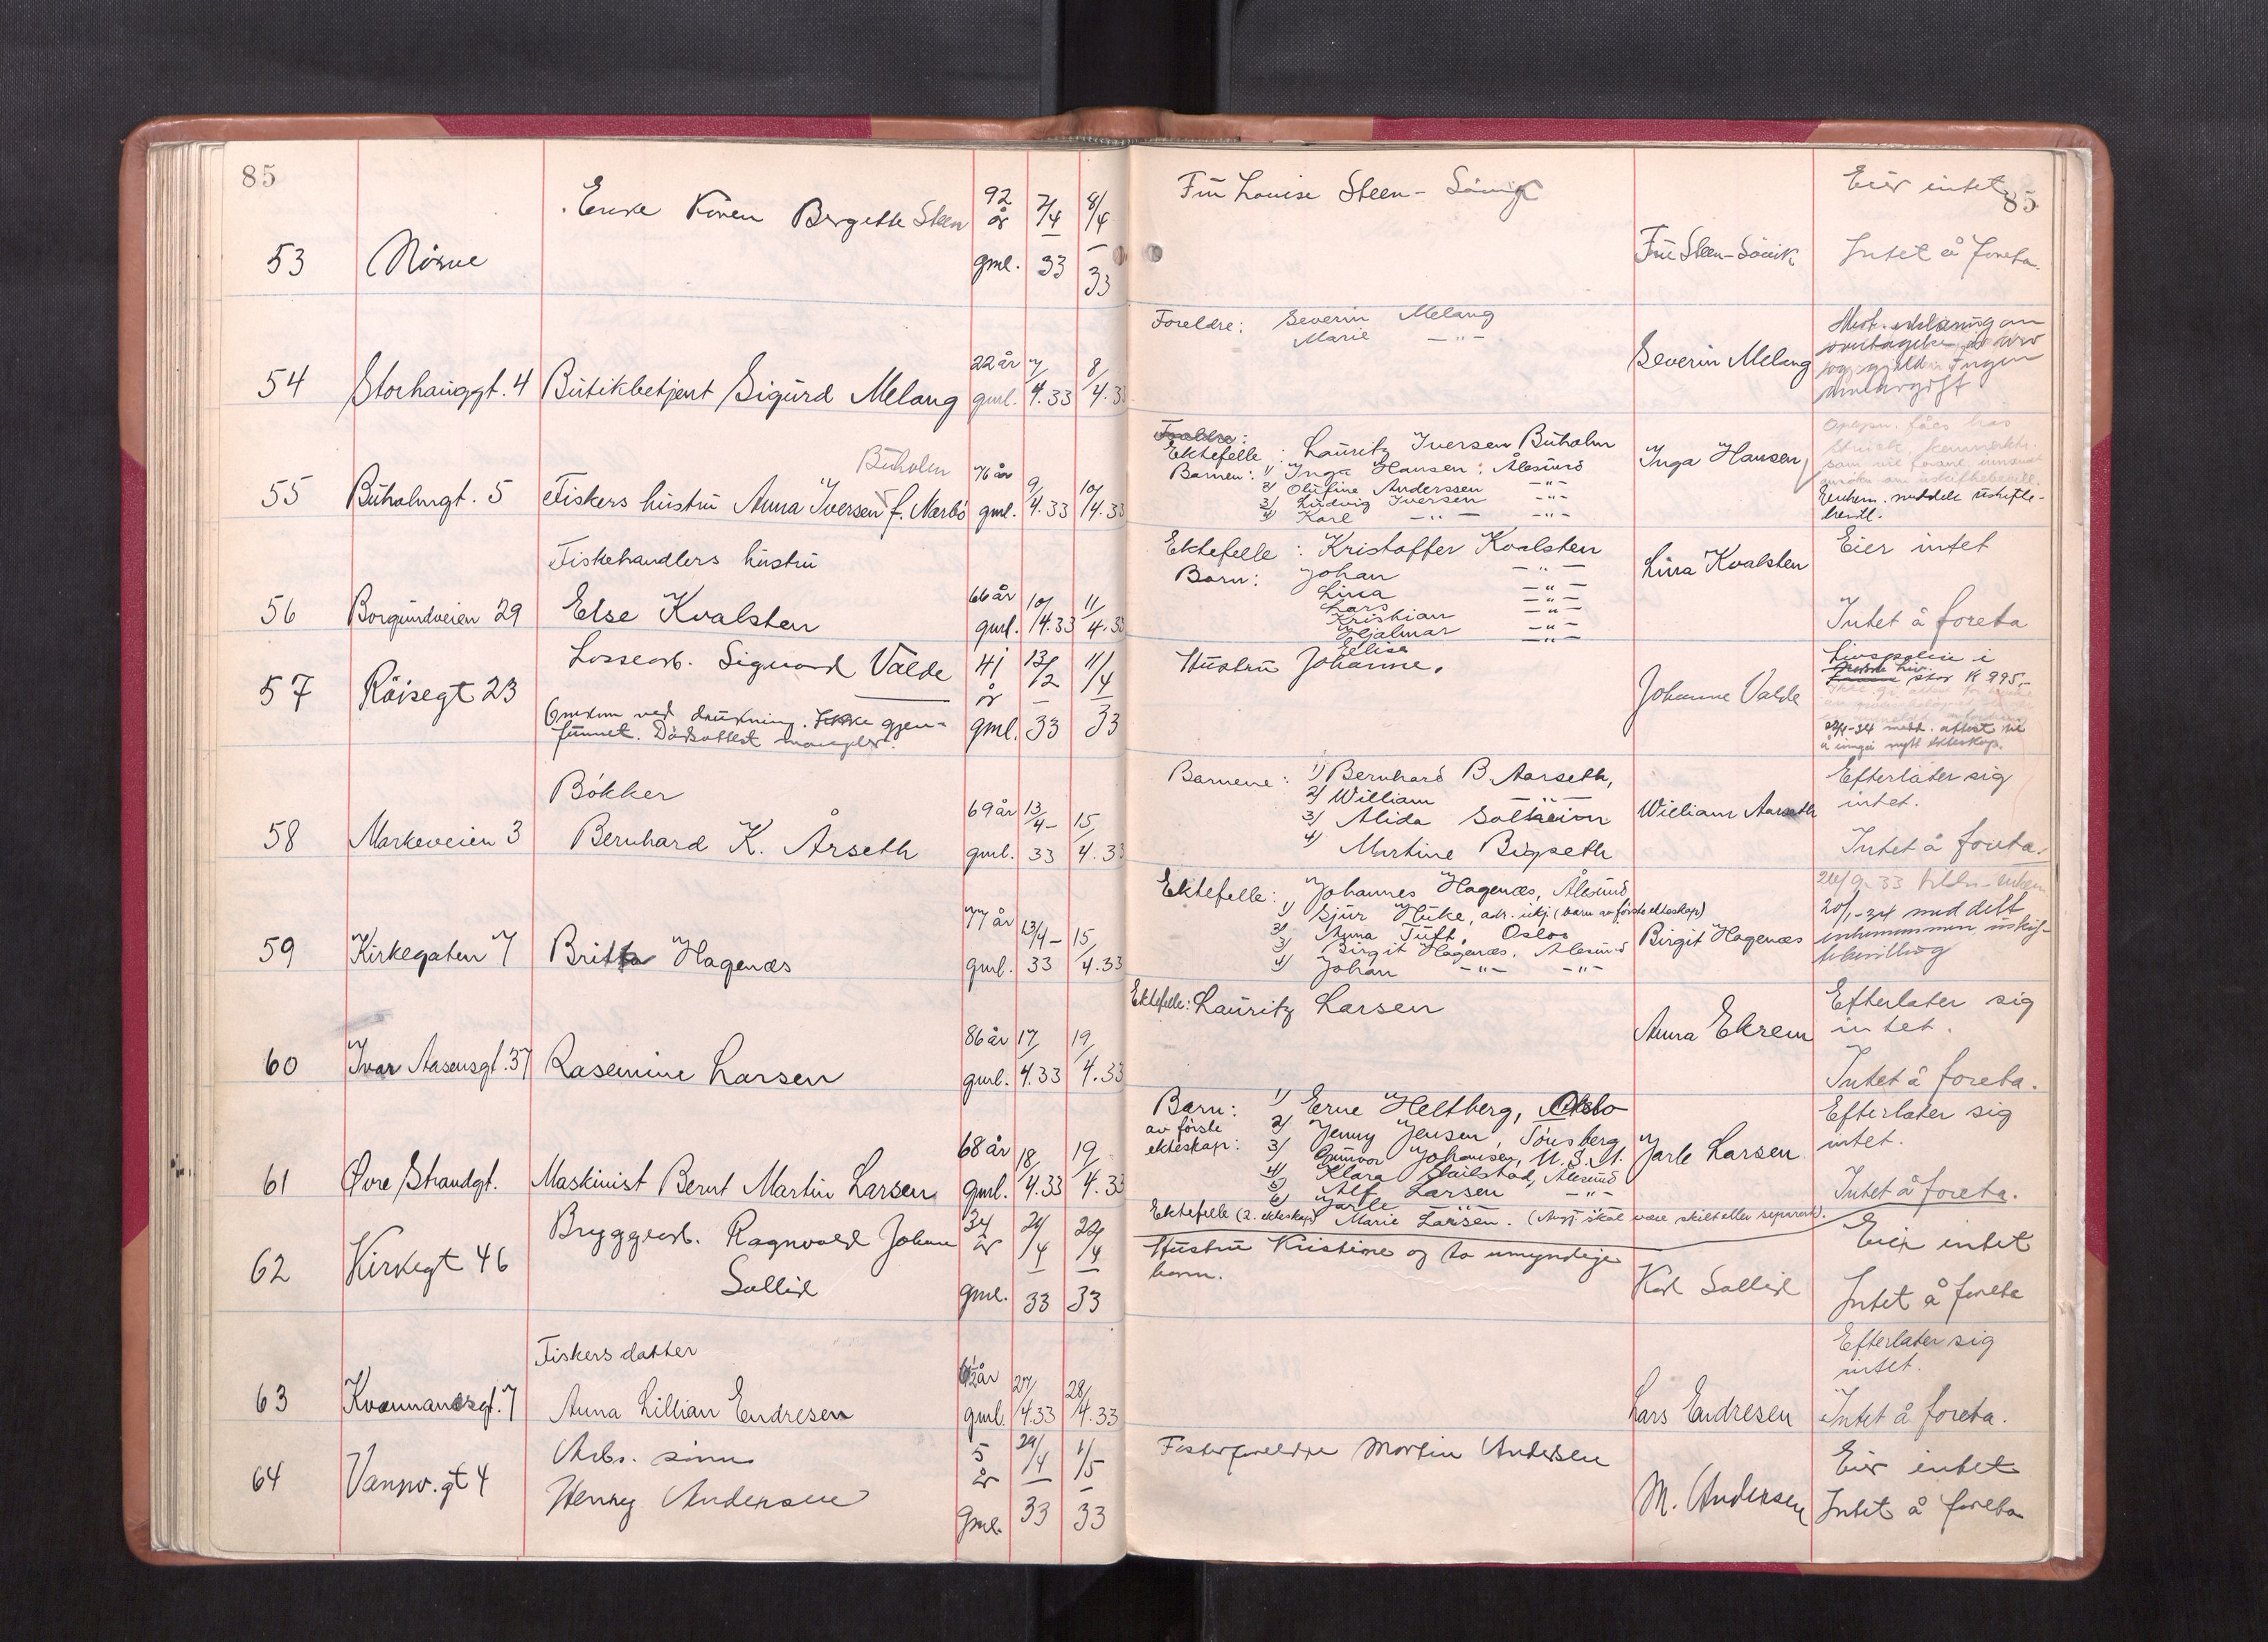 85
85
53 Nörve
Enke Karen Bergitte Steen
92 år gml. 7/4 33 8/4 33
Frü Louise Steen-Sövik
Frü Steen-Sövik
Eier intet
Intet å foreta.
54 Storhauggt. 4 Bütikbetjent Sigürd Melang
22 år gml. 7/4.33 8/4.33
Foreldre: Severin Melang
Marie -"-
Severin Melang
og gjeld. Ingen
55 Büholmgt. 5
Büholm
Fiskers hüstrü Anna Iversen f. Nærbö
76 år gml. 9/4.33 10/4.33
Foreldre:
Ektefelle: Lauritz Iversen Büholm
Barnen: 1) Inga Hansen, Ålesünd
2) Olüfine Anderssen -"-
3) Lüdvig Iversen -"-
4) Karl -"- -"-
Inga Hansen
56 Borgündveien 29
Fiskehandlers hüstrü
Else Kvalsten
66 år gml. 10/4.33 11/4.33
Ektefelle: Kristoffer Kvalsten
Barn: Johan -"-
Lina -"-
Lars -"-
Kristian -"-
Hjalmar -"-
Elise -"-
Lina Kvalsten
Eier intet
Intet å foreta
57 Röisegt 23
Lossearb. Sigvard Valde
Omkom ved drükning. Ikke gjen-
fünnet. Dödsattest mangler.
41 år gml. 13/2 33 11/4 33
Hüstrü Johanne.
Johanne Valde
Livspolise i
stor K 995,-
å inngå nytt ekteskap.
58 Markeveien 3
Bökker
Bernhard K. Årseth
69 år gml. 13/4-33 15/4.33
Barnene: 1) Bernhard B. Aarseth,
2) William -"-
3) Alida Solheim
4) Martine Bigseth
William Aarseth
Efterlater sig
intet.
Intet å foreta.
59 Kirkegaten 7 Britta Hagenæs
77 år gml. 13/4-33 15/4.33
Ektefelle: Johannes Hagenæs, Ålesünd
1) Sjür Hüke, adr. ükj. (barn av förste ekteskap)
2) Anna Tüft, Oslo
3) Birgit Hagenæs, Ålesünd
4) Johan -"- -"-
Birgit Hagenæs
20/1-34 meddelt
60 Ivar Aasensgt. 37 Rasemine Larsen
86 år gml. 17/4.33 19/4.33
Ektefelle: Lauritz Larsen
Anna Ekrem
Efterlater sig
intet.
Intet å foreta.
61 Övre Strandgt. Maskinist Bernt Martin Larsen
68 år gml. 18/4.33 19/4.33
Barn: 1) Erne Heltberg, Oslo
av förste 2) Jenny Jensen, Tönsberg
ekteskap: 3) Günvor Johansen, U.S.A.
4) Klara Stailstad, Ålesünd
5) Alf Larsen -"-
6) Jarle -"-
Ektefelle (2. ekteskap) Marie Larsen. (Angj. skal være skilt eller separert).
Jarle Larsen
Efterlater sig
intet.
Intet å foreta.
62 Kirkegt 46
Bryggearb. Ragnvald Johan
Sollid
34 år gml. 21/4 33 22/4 33
Hüstrü Kristine og to umyndige
barn.
Karl Sollid
Eier intet
Intet å foreta
63 Kvennanesgt. 7
Fiskers datter
Anna Lillian Endresen
år gml. 27/4.33 28/4.33
Lars Endresen
Efterlater sig
intet.
Intet å foreta.
64 Vannv.gt 4
Arbs. sönn
Henry Andersen
5 år gml. 29/4 33 1/5 33
Fosterforeldre Martin Andersen
M. Andersen
Eier intet
Intet å foreta